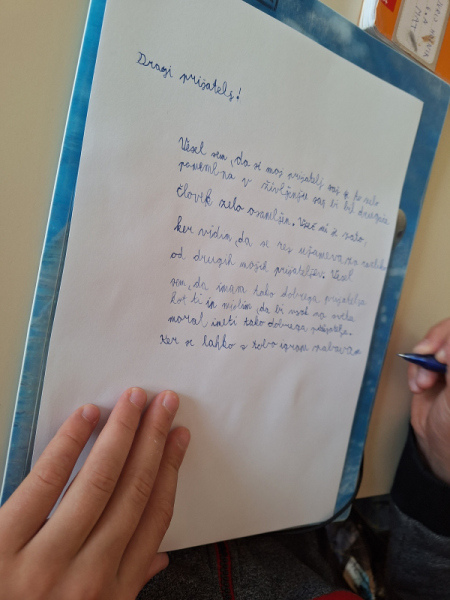 Dragi prijatelj!
Vesel sem, da si moj prijatelj saj je to zelo
pomembno v življenju saj bi bil drugače
človek zelo osamljen. Všeč mi je zato,
ker vidim, da se res
od drugih mojih prijateljev. Vesel
sem, da imam tako dobrega prijatelja
kot ti in mislim, da bi vsak na svetu
moral imeti tako dobrega prijatelja.
Ker se lahko s tabo igram